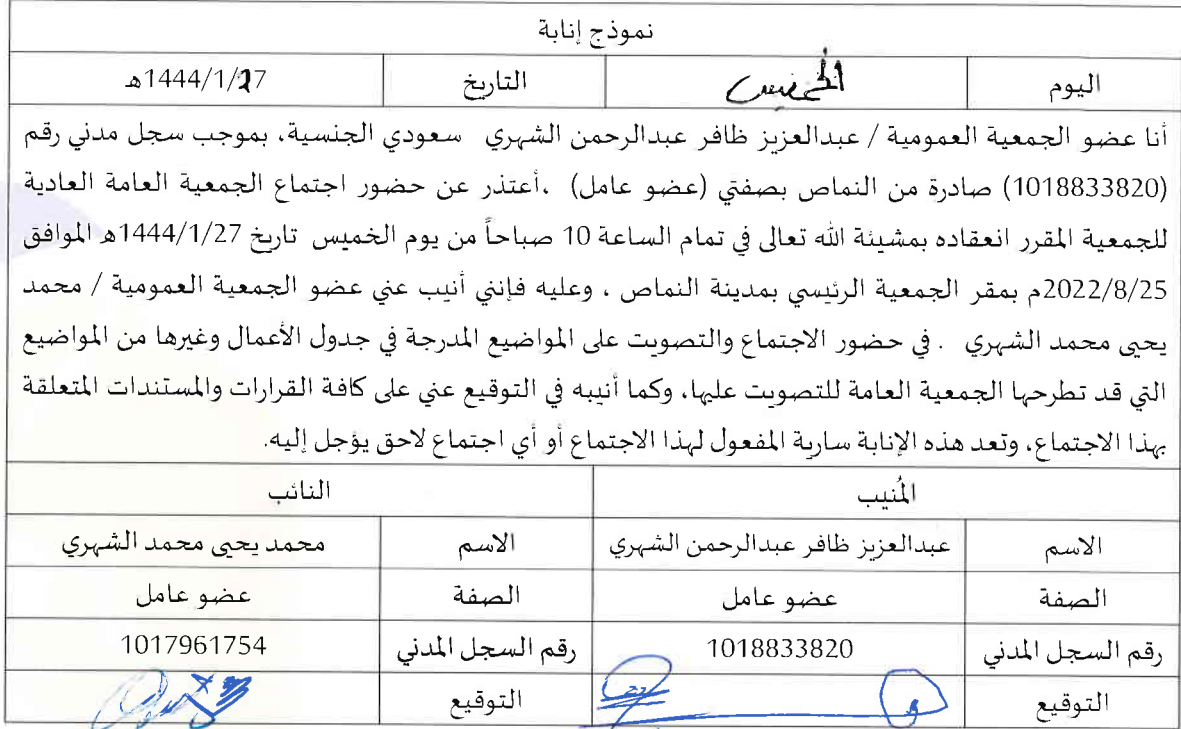 نموذج إنابة
اليوم الخميس التاريخ 1444/1/27هـ
أنا عضو الجمعية العمومية / عبدالعزيز ظافر عبدالرحمن الشهري سعودي الجنسية، بموجب سجل مدني رقم
(1018833820) صادرة من النماص بصفتي (عضو عامل) ،أعتذر عن حضور اجتماع الجمعية العامة العادية
للجمعية المقرر انعقاده بمشيئة الله تعالى في تمام الساعة 10 صباحاً من يوم الخميس تاريخ 1444/1/27هـ الموافق
2022/8/25م بمقر الجمعية الرئيسي بمدينة النماص ، وعليه فإنني أنيب عني عضو الجمعية العمومية / محمد
يحيى محمد الشهري . في حضور الاجتماع والتصويت على المواضيع المدرجة في جدول الأعمال وغيرها من المواضيع
التي قد تطرحها الجمعية العامة للتصويت عليها، وكما أنيبه في التوقيع عني على كافة القرارات والمستندات المتعلقة
بهذا الاجتماع، وتعد هذه الإنابة سارية المفعول لهذا الاجتماع أو أي اجتماع لاحق يؤجل إليه.
المُنيب النائب
الاسم عبدالعزيز ظافر عبدالرحمن الشهري الاسم محمد يحيى محمد الشهري
الصفة عضو عامل الصفة عضو عامل
رقم السجل المدني 1018833820 رقم السجل المدني 1017961754
التوقيع التوقيع